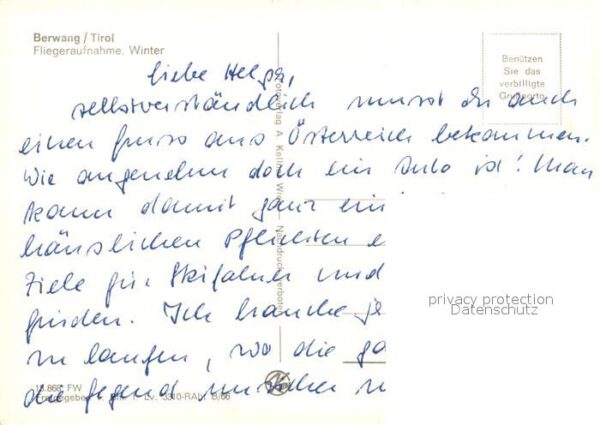 Berwang / Tirol
Fliegeraufnahme, Winter
Benützen
Sie das
verbilligte
Grußporto
Liebe Helga,
selbstverständlich musst du auch
einen Gruss aus Österreich bekommen.
Wie angenehm doch ein Auto ist! Man
kann damit ganz ein
häuslichen Pflichten e
Ziele für Skifahrer und
finden. Ich brauche je
zu laufen, wo die ga
die Gegend unsicher m
privacy protection
Datenschutz